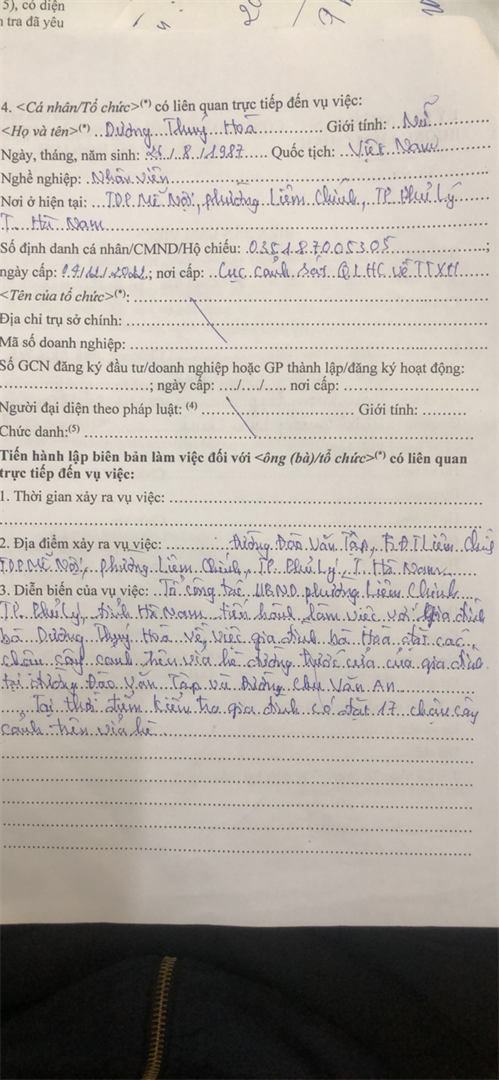 5), có diện
tra đã yêu
4. <Cá nhân/Tổ chức>(*) có liên quan trực tiếp đến vụ việc:
<Họ và tên>(*) ..Dương Thuý Hoà........ Giới tính: ..Nữ......
Ngày, tháng, năm sinh: 21/.8./.1987..... Quốc tịch: ..Việt Nam
Nghề nghiệp: .Nhân viên........
Nơi ở hiện tại: ...TDP Mễ Nội, phường Liêm Chính, TP Phủ Lý
T. Hà Nam........
Số định danh cá nhân/CMND/Hộ chiếu: .035187005305........;
ngày cấp: ; nơi cấp: ..Cục cảnh sát QLHC về TTXH
<Tên của tổ chức>(*): ........
Địa chỉ trụ sở chính: ........
Mã số doanh nghiệp: ........
Số GCN đăng ký đầu tư/doanh nghiệp hoặc GP thành lập/đăng ký hoạt động:
........; ngày cấp: ..../..../..... nơi cấp: ........
Người đại diện theo pháp luật: (4) ........ Giới tính: ........
Chức danh:(5) ........
Tiến hành lập biên bản làm việc đối với <ông (bà)/tổ chức>(*) có liên quan
trực tiếp đến vụ việc:
1. Thời gian xảy ra vụ việc: ........
2. Địa điểm xảy ra vụ việc: ........Đường Đào Văn Tập, KĐT Liêm Chính
TDP Mễ Nội, phường Liêm Chính, TP. Phủ Lý, T. Hà Nam......
3. Diễn biến của vụ việc: ..Tổ công tác UBND phường Liêm Chính
TP. Phủ Lý, tỉnh Hà Nam tiến hành làm việc với gia đình
bà Dương Thuý Hoà về việc gia đình bà Hoà đặt các
chậu cây cảnh trên vỉa hè đường trước cửa của gia đình
tại đường Đào Văn Tập và đường Chu Văn An......
....Tại thời điểm kiểm tra gia đình có đặt 17 chậu cây
cảnh trên vỉa hè........